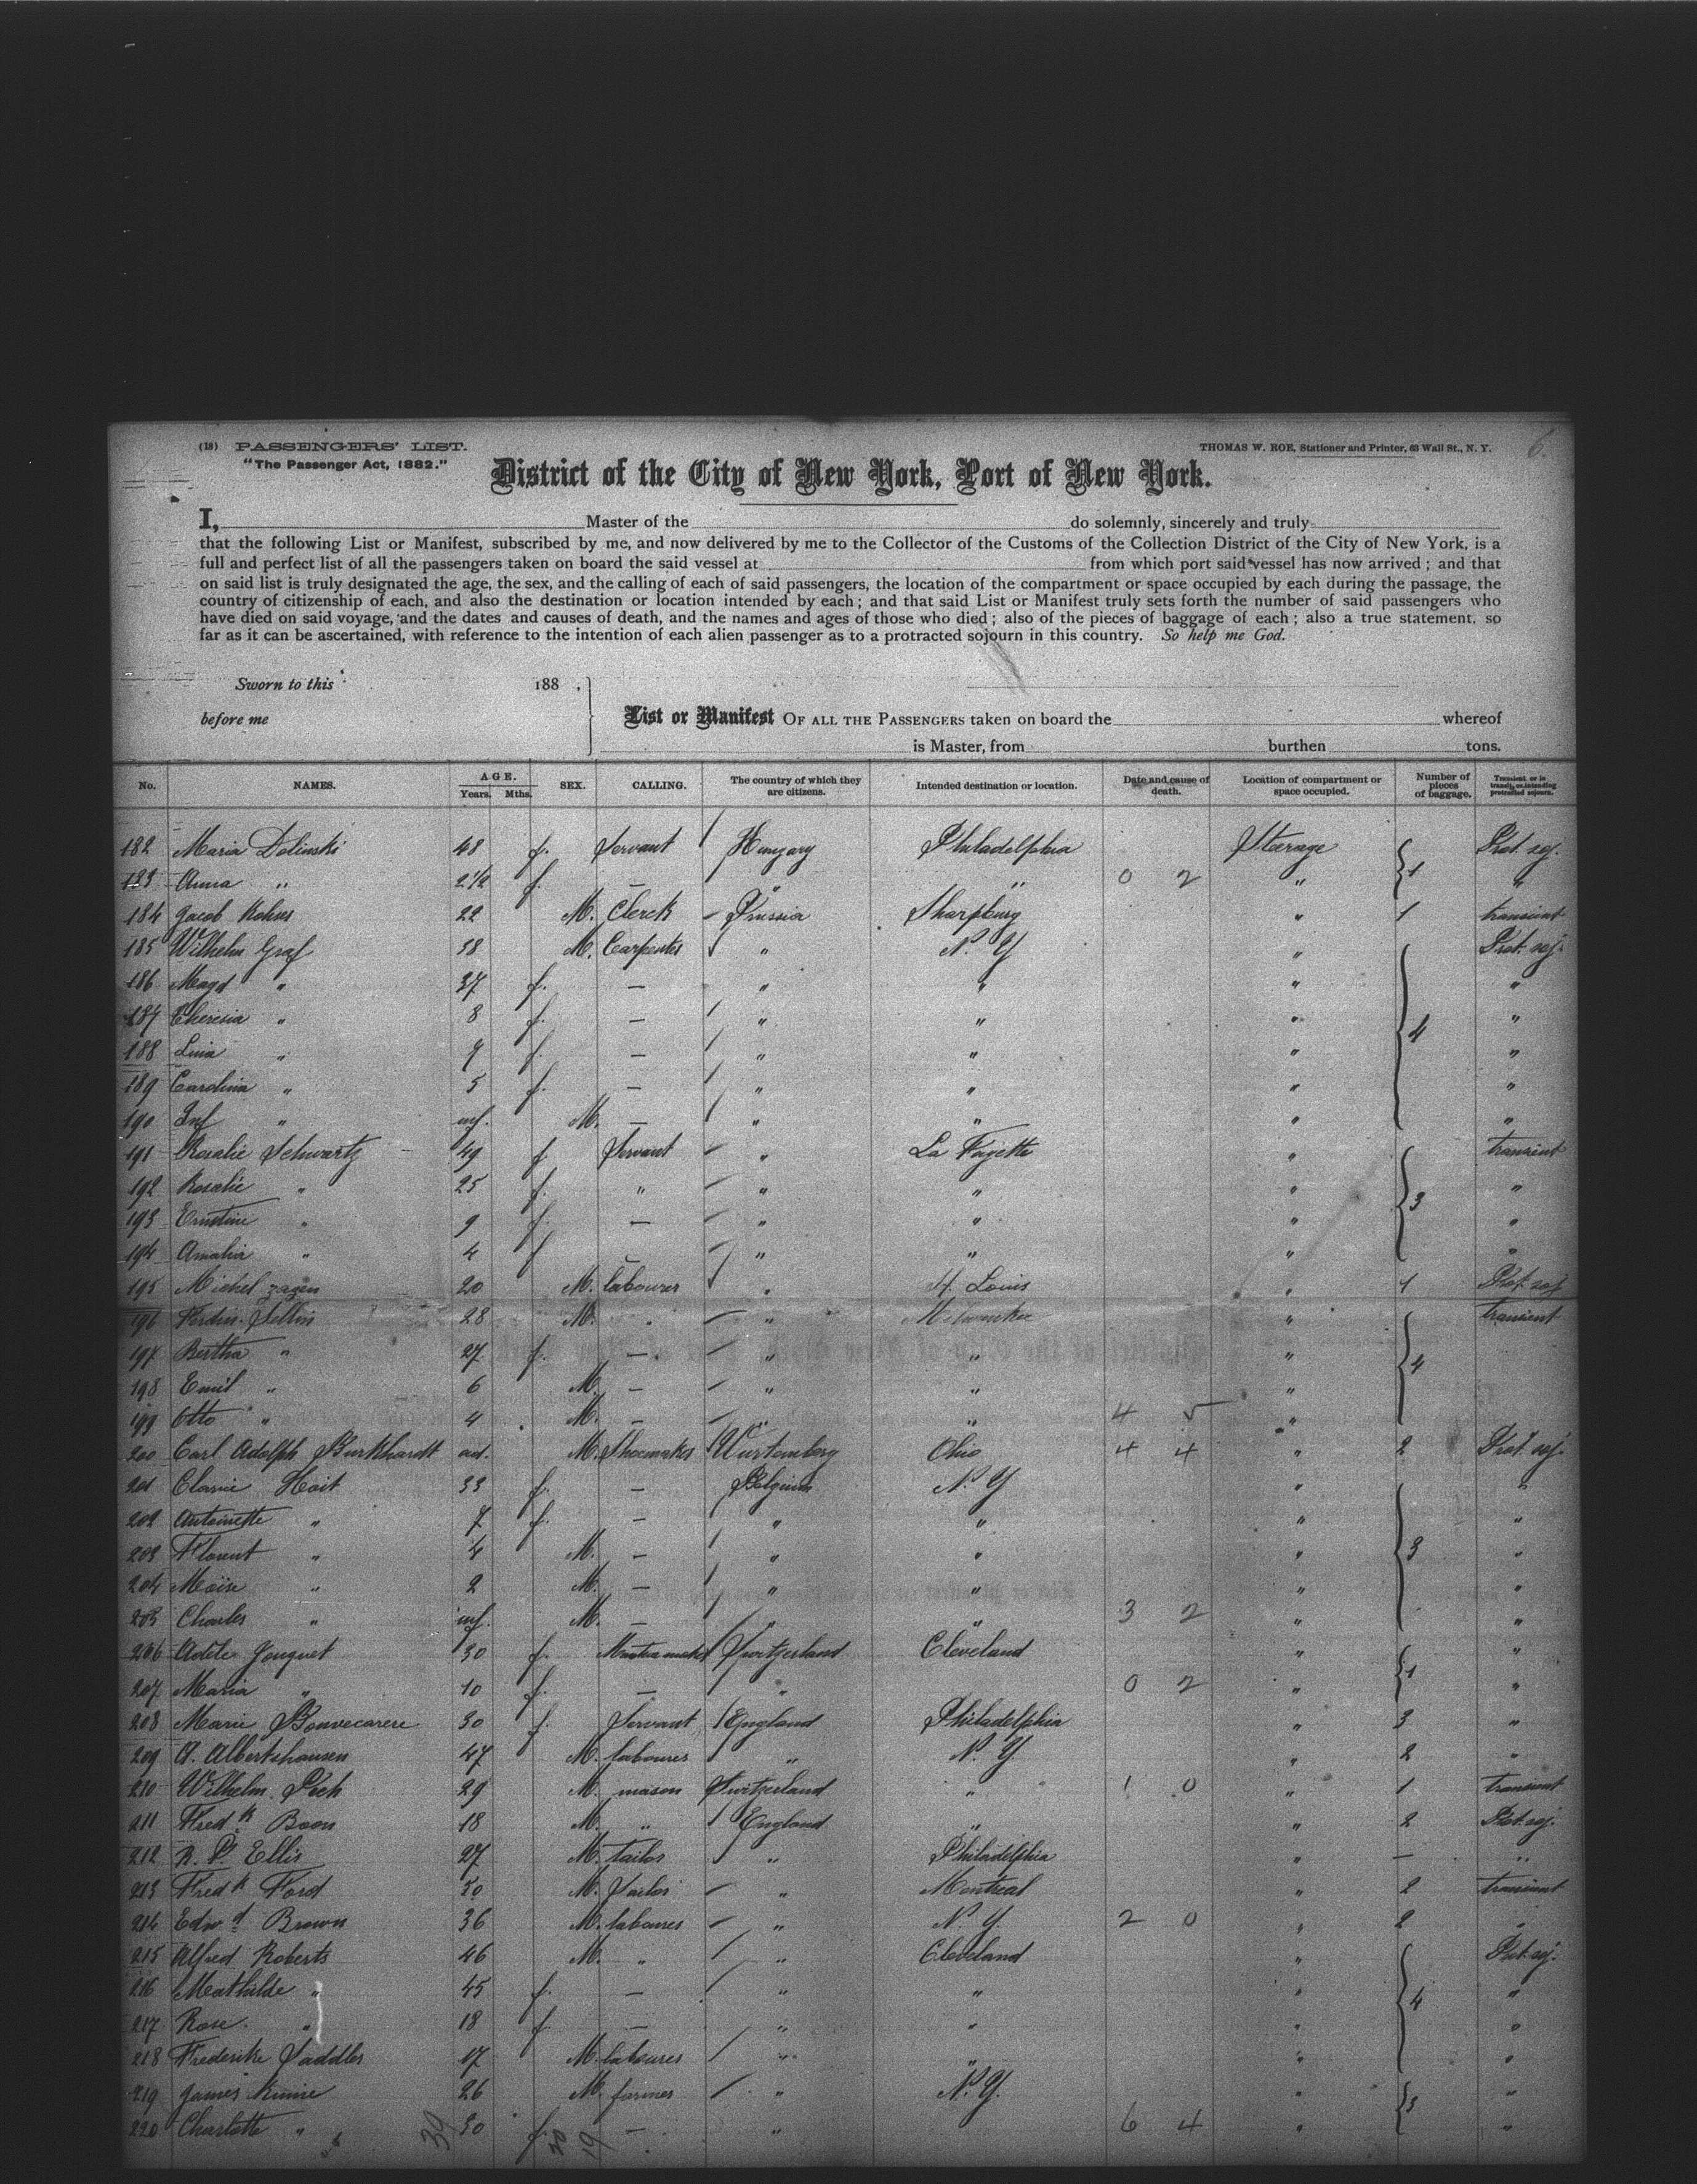 (18) PASSENGERS' LIST.
"The Passenger Act, 1882."
THOMAS W. ROE, Stationer and Printer, 63 Wall St., N. Y.
6.
District of the City of New York, Port of New York.
I, Master of the do solemnly, sincerely and truly
that the following List or Manifest, subscribed by me, and now delivered by me to the Collector of the Customs of the Collection District of the City of New York, is a
full and perfect list of all the passengers taken on board the said vessel at from which port said vessel has now arrived; and that
on said list is truly designated the age, the sex, and the calling of each of said passengers, the location of the compartment or space occupied by each during the passage, the
country of citizenship of each, and also the destination or location intended by each; and that said List or Manifest truly sets forth the number of said passengers who
have died on said voyage, and the dates and causes of death, and the names and ages of those who died; also of the pieces of baggage of each; also a true statement, so
far as it can be ascertained, with reference to the intention of each alien passenger as to a protracted sojourn in this country. So help me God.
Sworn to this 188 ,
before me
List or Manifest OF ALL THE PASSENGERS taken on board the whereof
is Master, from burthen tons.
No. NAMES. AGE. Years. Mths. SEX. CALLING. The country of which they are citizens. Intended destination or location. Date and cause of death. Location of compartment or space occupied. Number of pieces of baggage. Transient or in transit, or intending protracted sojourn.
182 Maria Dolinski 48 f. Servant Hungary Philadelphia Steerage 1 Prot. soj.
183 Anna " 2 1/2 f. — " " 0 2 " "
184 Jacob Kohns 22 M. Clerck Prussia Sharpsburg " 1 transient
185 Wilhelm Graf 38 M. Carpenter " N. Y " Prot. soj.
186 Magd " 37 f. — " " " "
187 Theresia " 8 f. — " " " 4 "
188 Lina " 9 f. — " " " "
189 Carolina " 5 f. — " " " "
190 Inf " inf. M. — " " " "
191 Rosalie Schwartz 49 f Servant " La Fayette " transient
192 Rosalie " 25 f. " " " " "
193 Ernstine " 9 f. — " " " 3 "
194 Amalia " 4 f — " " " "
195 Michel 20 M. labourer " St. Louis " 1 Prot. soj
196 Ferdin. Sellin 28 M. " " Milwaukee " transient
197 Bertha " 27 f. — " " " 4
198 Emil " 6 M. — " " "
199 Otto " 4 M. — " " 4 5 "
200 Carl Adolph Burkhardt ad. M. Shoemaker Wurtemberg Ohio 4 4 " 2 Prot. soj
201 Clarie Hoit 33 f. — Belgium N. Y " "
202 Antoinette " 7 f. — " " " "
203 Florent " 4 M. — " " " 3 "
204 Moïse " 2 M. — " " " "
205 Charles " inf. M. — " " 3 2 " "
206 Adèle Jouguet 30 f. Switzerland Cleveland " "
207 Maria " 10 f. — " 0 2 " 1 "
208 Marie Bonvecarere 30 f. Servant England Philadelphia " 3 "
209 A. Albertshausen 47 M. labourer " N. Y. " 2 "
210 Wilhelm 29 M. mason Switzerland " 1 0 " 1 transient
211 Fredk Boon 18 M. " England " " 2 Prot. soj.
212 Ellis 27 M. tailor " Philadelphia " — "
213 Fredk Ford 30 M. " Montreal " 2 transient
214 Edwd Brown 36 M. labourer " N. Y. 2 0 " 2 "
215 Alfred Roberts 46 M. " " Cleveland " Prot. soj.
216 Meathilde " 45 f. — " " " 4 "
217 Rose " 18 f. — " " " "
218 Frederike Saddler 17 M. labourer " " " "
219 James 26 M. farmer " N. Y. " 3 "
220 Charlotte " 30 f. — " 6 4 " "
39 20 19